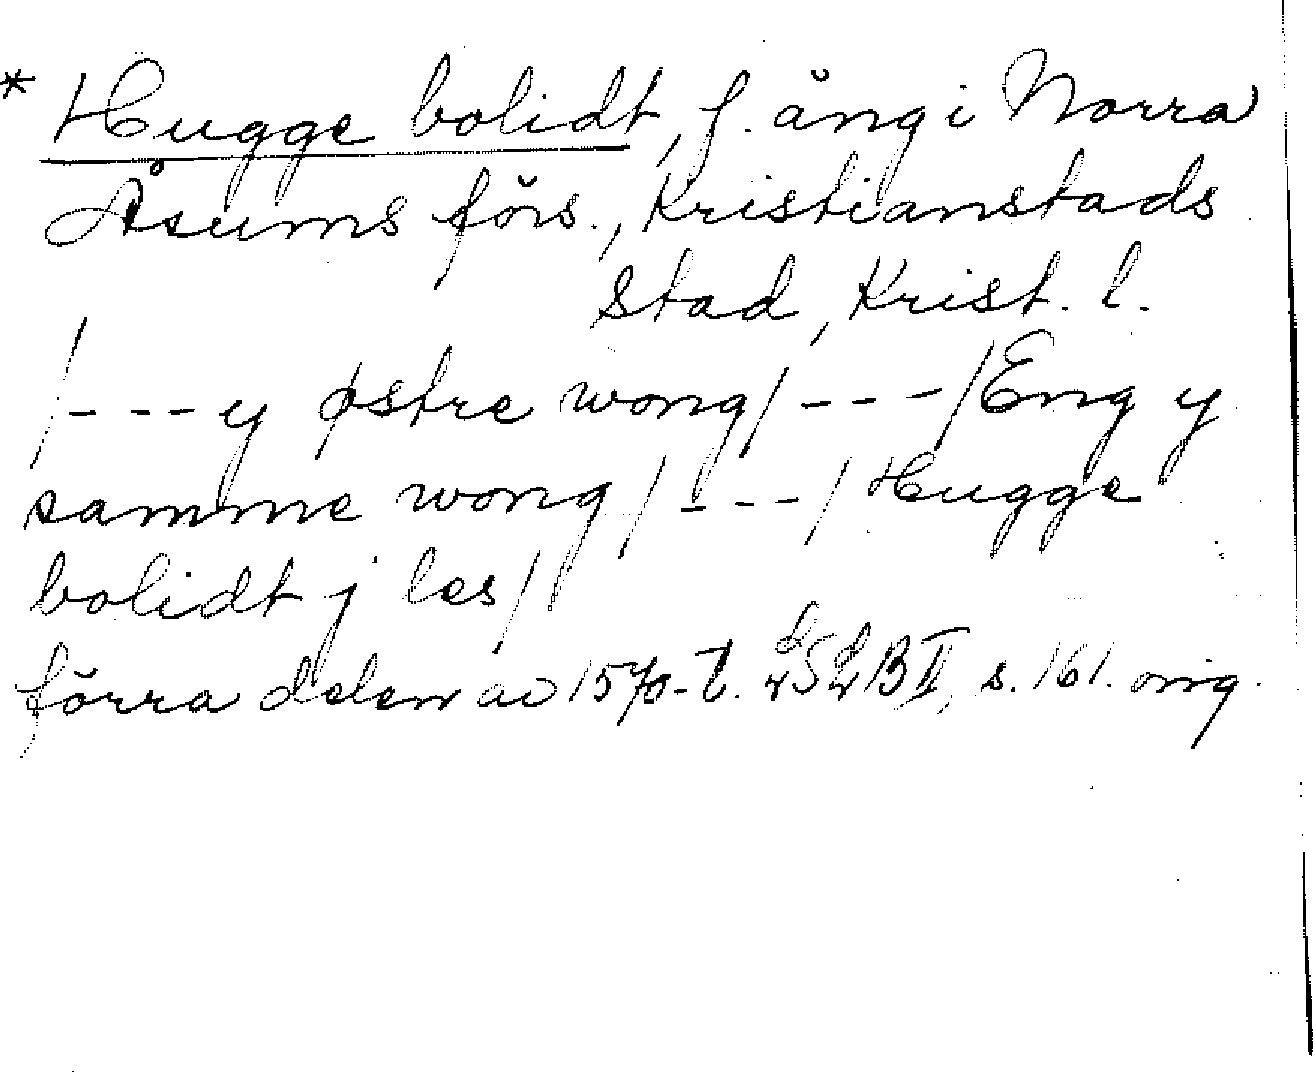 * Hugge bolidt, f. äng i Norra
Åsums förs., Kristianstads
stad, Krist. l.
/---y østre wong/---/Eng y
samme wong/---/Hugge
bolidt j les/
förra delen av 1570-t. LSLB II, s. 161. orig.